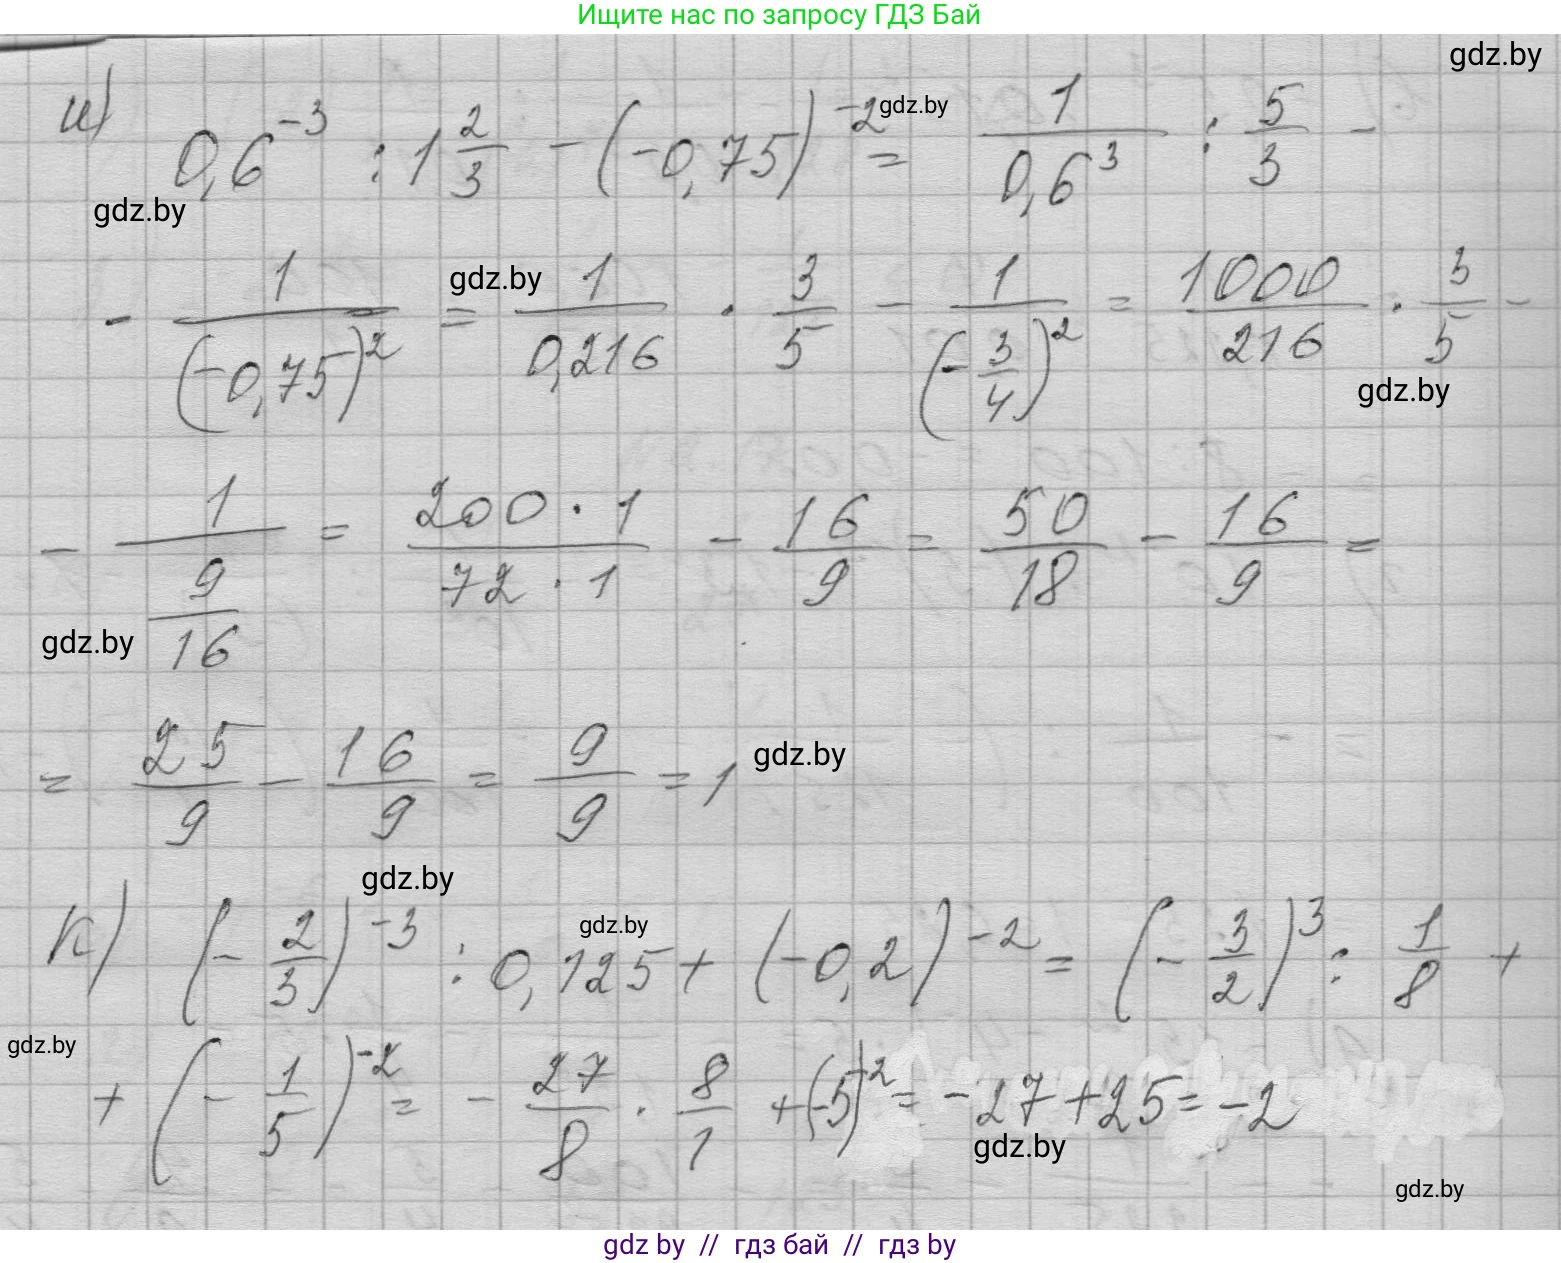 Ищите нас по запросу ГДЗ Бай
gdz.by
и) 0,6^{-3} : 1 2/3 - (-0,75)^{-2} = 1/0,6^3 : 5/3 -
gdz.by
gdz.by
- 1/(-0,75)^2 = 1/0,216 · 3/5 - 1/(-3/4)^2 = 1000/216 · 3/5 -
gdz.by
gdz.by
- 1/(9/16) = 200·1/72·1 - 16/9 = 50/18 - 16/9 =
gdz.by
= 25/9 - 16/9 = 9/9 = 1
gdz.by
gdz.by
к) (-2/3)^{-3} : 0,125 + (-0,2)^{-2} = (-3/2)^3 : 1/8 +
gdz.by
gdz.by
+ (-1/5)^{-2} = - 27/8 · 8/1 + (-5)^2 = -27 + 25 = -2
gdz.by
gdz.by
gdz by // гдз бай // гдз by